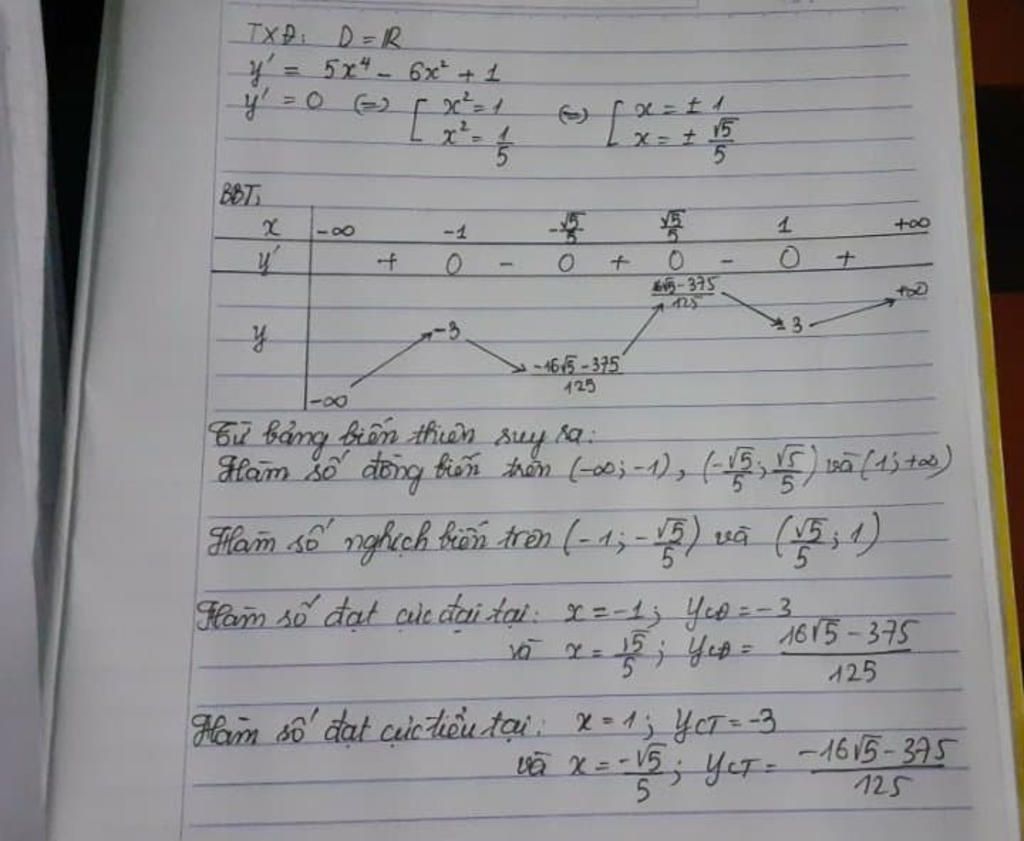 TXĐ: D = R
y' = 5x⁴ - 6x² + 1
y' = 0 (=) [ x² = 1 (=) [ x = ± 1
x² = 1/5 x = ± √5/5
BBT:
x -∞ -1 -√5/5 √5/5 1 +∞
y' + 0 - 0 + 0 - 0 +
(16√5 - 375)/125 +∞
y -3 -3
(-16√5 - 375)/125
-∞
Từ bảng biến thiên suy ra:
Hàm số đồng biến trên (-∞; -1), (-√5/5; √5/5) và (1; +∞)
Hàm số nghịch biến trên (-1; -√5/5) và (√5/5; 1)
Hàm số đạt cực đại tại: x = -1; yCĐ = -3
và x = √5/5; yCĐ = (16√5 - 375)/125
Hàm số đạt cực tiểu tại: x = 1; yCT = -3
và x = -√5/5; yCT = (-16√5 - 375)/125